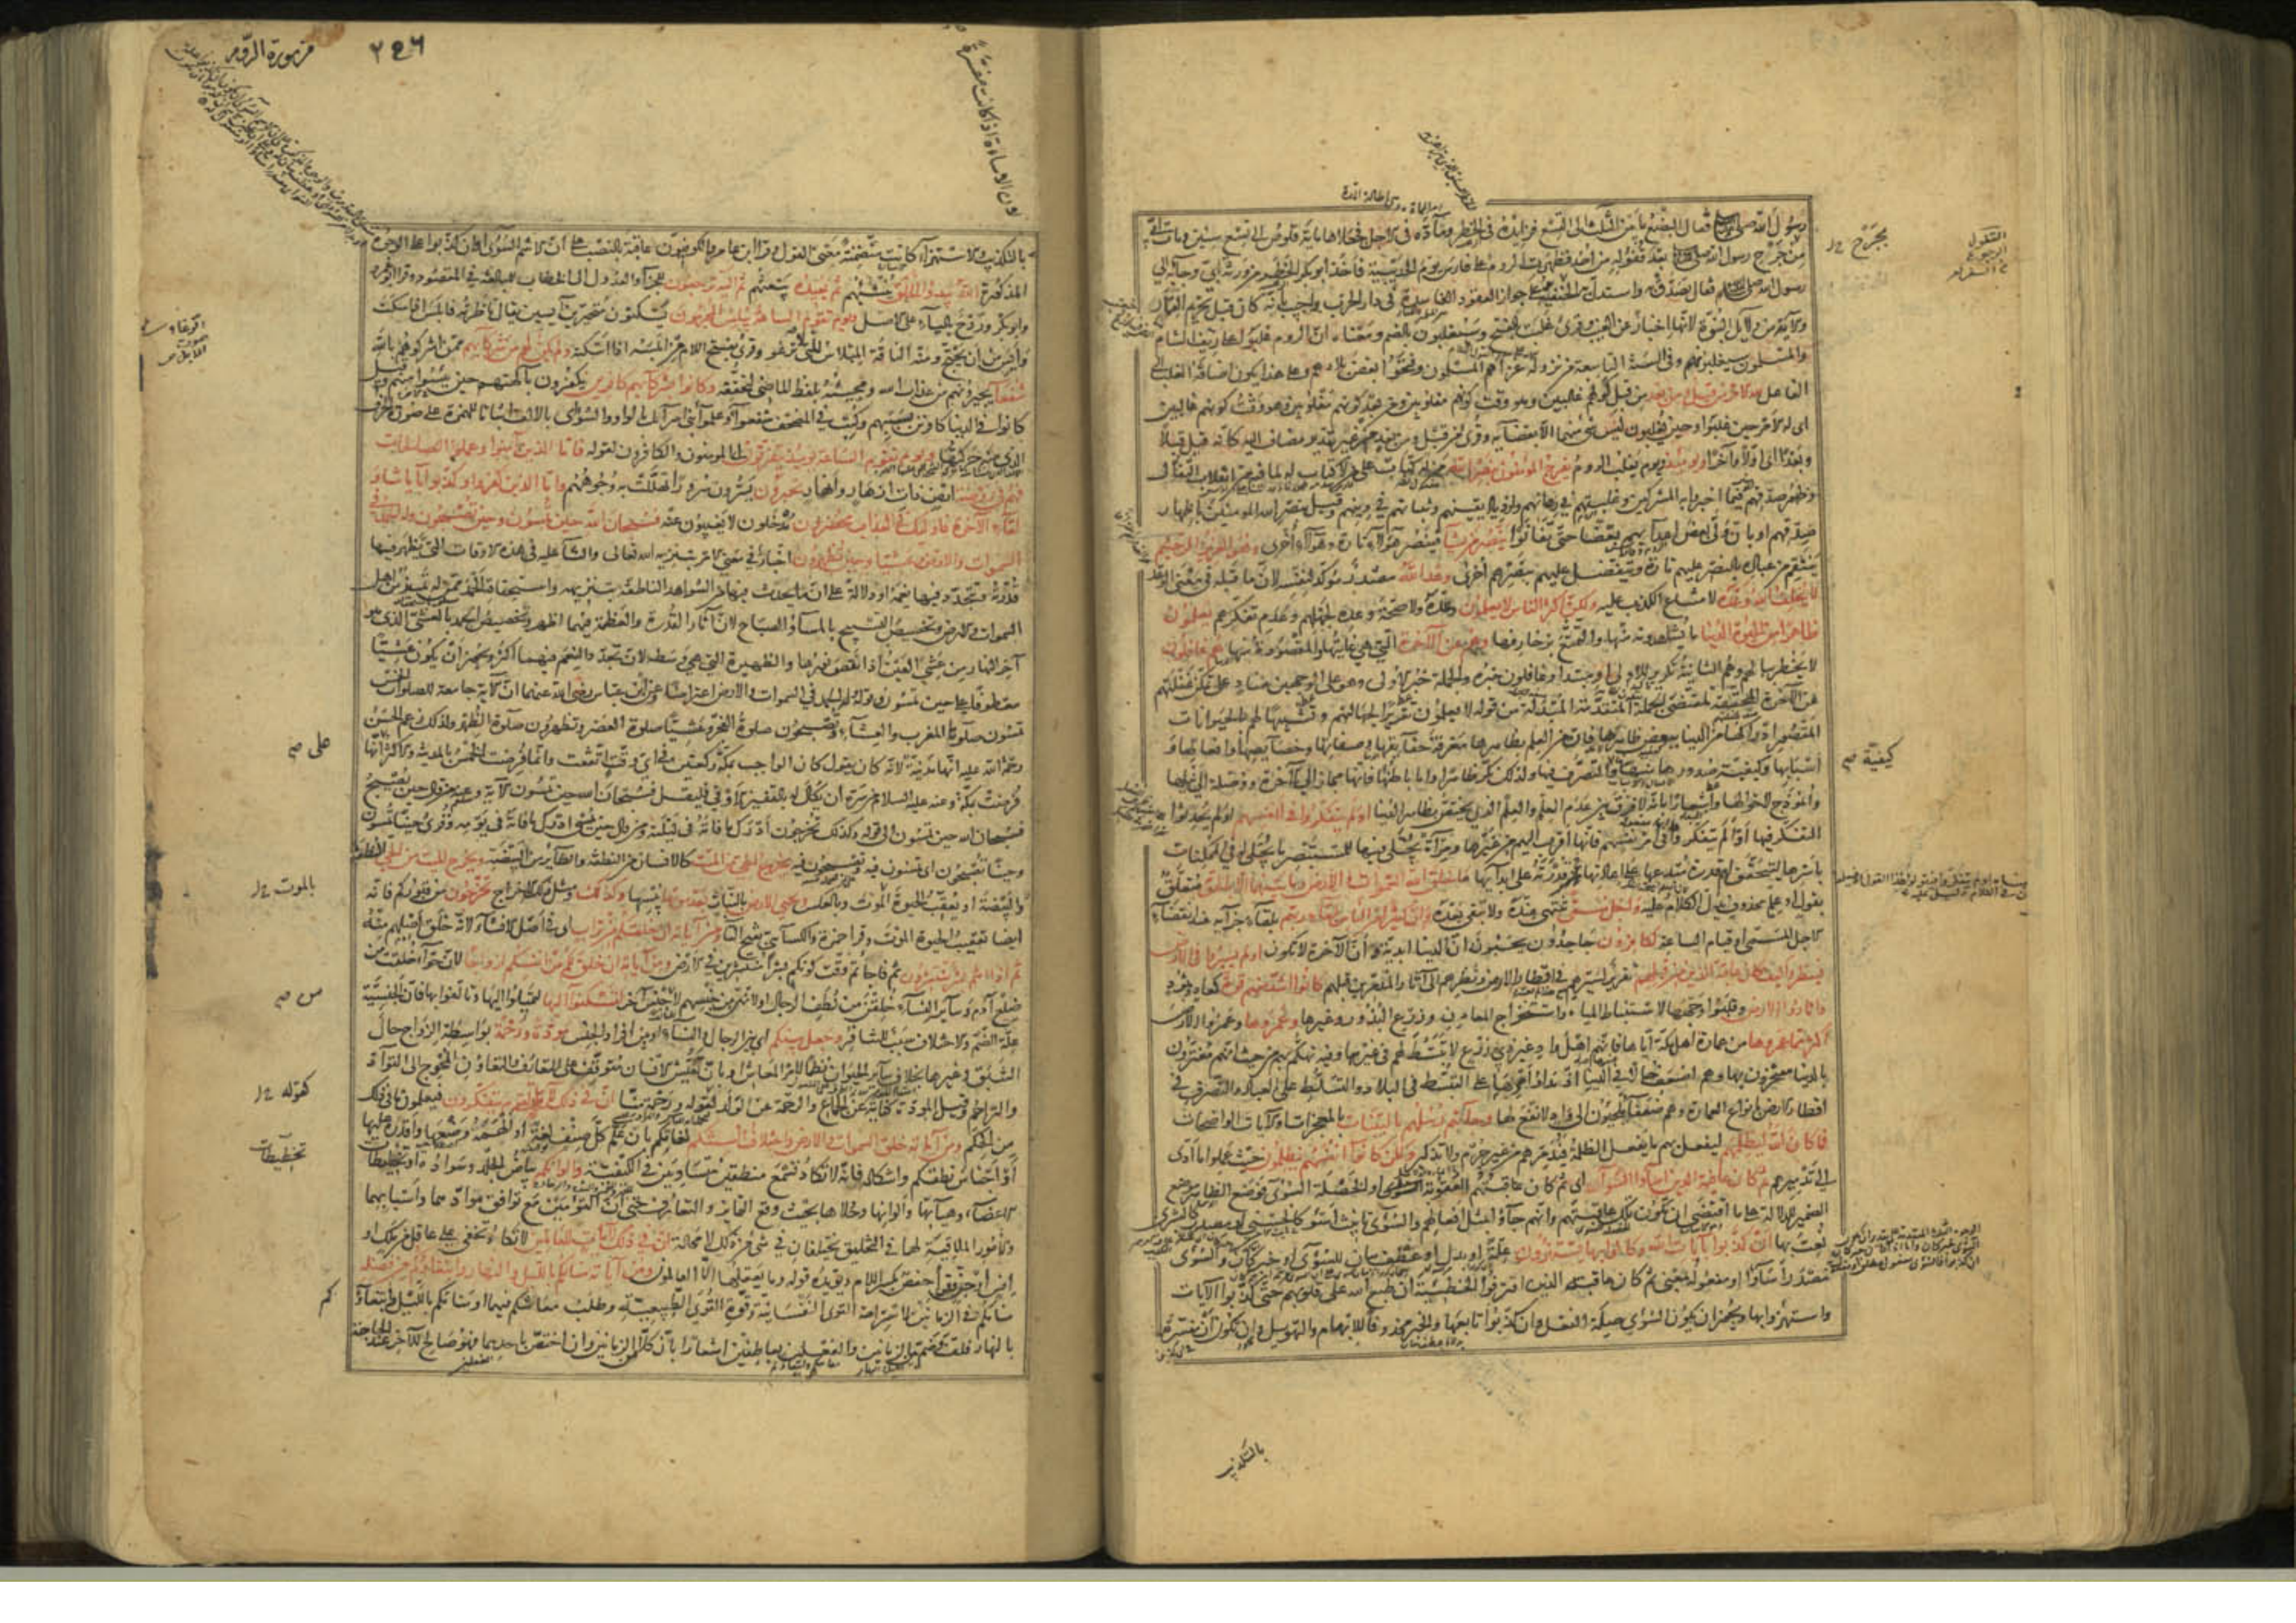 رسول الله صلى الله فقال البضع ما بين الثلث الى التسع فزايده في الخطر وماده في الاجل فجعلاها ماية قلوص الى تسع سنين ومات ابي
من جرح رسول الله بعد قفوله من احد فظهرت الروم على فارس يوم الحديبية فاخذ ابو بكر الخطر من ورثة ابي وجا به الى
رسول الله فقال تصدق به واستدل به الحنفية على جواز العقود الفاسدة في دار الحرب واجيب بانه كان قبل تحريم القمار
والآية من دلايل النبوة لانها اخبار عن الغيب وقرئ غلبت بالفتح وسيغلبون بالضم ومعناه ان الروم غلبوا على ريف الشام
والمسلمون سيغلبونهم وفي السنة التاسعة من نزوله غزاهم المسلمون وفتحوا بعض بلادهم وعلى هذا يكون اضافة الغلب الى
الفاعل لله الامر من قبل ومن بعد من قبل كونهم غالبين وهو وقت كونهم مغلوبين ومن بعد كونهم مغلوبين وهو وقت كونهم غالبين
اي له الامر حين غلبوا وحين يغلبون ليس شئ منهما الا بقضآيه وقرئ من قبل ومن بعد من غير تقدير مضاف اليه كانه قيل قبلا
وبعدا اي اولا وآخرا ويومئذ ويوم يغلب الروم يفرح المؤمنون بنصر الله من له كتاب على من لا كتاب له لما فيه من انقلاب التفأل
وظهور صدقهم فيما اخبروا به المشركين وغلبتهم في رهانهم وازدياد يقينهم وثباتهم في دينهم وقيل بنصر الله المؤمنين باظهار
صدقهم او بان ولى بعض اعدآيهم بعضا حتى تفانوا ينصر من يشآ فينصر هؤلآء تارة وهؤلآء اخرى وهو العزيز الرحيم
ينتقم من عباده بالنصر عليهم تارة ويتفضل عليهم بنصرهم اخرى وعد الله مصدر مؤكد لنفسه لان ما قبله في معنى الوعد
لا يخلف الله وعده لامتناع الكذب عليه ولكن اكثر الناس لا يعلمون وعده ولا صحة وعده لجهلهم وعدم تفكرهم يعلمون
ظاهرا من الحيوة الدنيا ما يشاهدونه منها والتمتع بزخارفها وهم عن الآخرة التي هي غايتها والمقصود منها هم غافلون
لا يخطر ببالهم وهم الثانية تكرير للاولى او مبتدا وغافلون خبره والجملة خبر الاولى وهو على الوجهين مناد على تمكن غفلتهم
عن الآخرة المحققة لمقتضى الجملة المتقدمة المبدلة من قوله لا يعلمون تقريرا لجهالتهم وتشبيها لهم بالحيوانات
المقصور ادراكها من الدنيا ببعض ظاهرها فان من العلم بظاهرها معرفة حقايقها وصفاتها وخصآيصها وافعالها و
اسبابها وكيفية صدورها منها والتصرف فيها ولذلك نكر ظاهرا واما باطنها فانها مجاز الى الآخرة ووصلة الى نيلها
وانموذج لاحوالها واشعارا بانه لا فرق بين عدم العلم والعلم الذي يختص بظاهر الدنيا اولم يتفكروا في انفسهم اولم يحدثوا
التفكر فيها او اولم يتفكروا في امر انفسهم فانها اقرب اليهم من غيرها ومرآة يجتلى فيها للمستبصر ما يجتلى له في الممكنات
باسرها ليتحقق لهم قدرة مبدعها على اعادتها قدرته على ابدآيها ما خلق الله السموات والارض وما بينهما الا بالحق متعلق
بقول او علم محذوف يدل عليه الكلام واجل مسمى تنتهي عنده ولا تبقى بعده وان كثيرا من الناس بلقاء ربهم بلقاء جزآيه عند انقضآء
الاجل المسمى او قيام الساعة لكافرون جاحدون يحسبون ان الدنيا ابدية وان الآخرة لا تكون اولم يسيروا في الارض
فينظروا كيف كان عاقبة الذين من قبلهم تقرير لسيرهم في اقطار الارض ونظرهم الى آثار المدمرين قبلهم كانوا اشد منهم قوة كعاد وثمود
واثاروا الارض وقلبوا وجهها لاستنباط المياه واستخراج المعادن وزرع البذور وغيرها وعمروها وعمروا الارض
اكثر مما عمروها من عمارة اهل مكة اياها فانهم اهل واد غير ذي زرع لا تبسط لهم في غيرها وفيه تهكم بهم من حيث انهم مغترون
بالدنيا مفتخرون بها وهم اضعف حالا فيها اذ مدار امرها على التبسط في البلاد والتسلط على العباد والتصرف في
اقطار الارض بانواع العمارة وهم ضعفاء ملجؤن الى واد لا نفع لها وجآءتهم رسلهم بالبينات بالمعجزات والآيات الواضحات
فما كان الله ليظلمهم ليفعل بهم ما يفعل الظلمة فيدمرهم من غير جرم ولا تذكير ولكن كانوا انفسهم يظلمون حيث عملوا ما ادى
الى تدميرهم ثم كان عاقبة الذين اساؤا السوآى اي ثم كان عاقبتهم العقوبة السوآى او الخصلة السوآى فوضع الظاهر موضع
الضمير للدلالة على ما اقتضى ان تكون تلك عاقبتهم وانهم جآؤا بمثل افعالهم والسوآى تانيث اسوء كالحسنى او مصدر كالبشرى
نعت بها ان كذبوا بآيات الله وكانوا بها يستهزؤن علة او بدل او عطف بيان للسوآى او خبر كان والسوآى
مصدر اساؤا او مفعوله بمعنى ثم كان عاقبة الذين اقترفوا الخطيئة ان طبع الله على قلوبهم حتى كذبوا الآيات
واستهزؤا بها ويجوز ان يكون السوآى صلة الفعل وان كذبوا تابعها والخبر محذوف للابهام والتهويل وان يكون ان مفسرة
بالتكذيب
يجرح
كيفية صح
من سورة الروم
٢٤٦
لان الاساءة اذا كانت مفسرة
بالتكذيب والاستهزآء كانت متضمنة معنى القول وقرا ابن عامر والكوفيون عاقبة بالنصب على ان الاسم السوآى وان كذبوا على الوجوه
المذكورة الله يبدؤ الخلق ينشئهم ثم يعيده يبعثهم ثم اليه ترجعون للجزآء والعدول الى الخطاب للمبالغة في المقصود وقرا ابو عمرو
وابو بكر وروح باليآء على الاصل ويوم تقوم الساعة يبلس المجرمون يسكتون متحيرين آيسين يقال ناظرته فابلس اذا سكت
وايس من ان يحتج ومنه الناقة المبلاس التي لا ترغو وقرئ بفتح اللام من ابلسه اذا اسكته ولم يكن لهم من شركآيهم ممن اشركوهم بالله
شفعآء يجيرونهم من عذاب الله ومجيئه بلفظ الماضي لتحققه وكانوا بشركآيهم كافرين يكفرون بآلهتهم حين يئسوا منهم وقيل
كانوا في الدنيا كافرين بسببهم وكتب في المصحف شفعوآ وعلموآ بني اسرآئل بالواو والسوآى بالالف اثباتا للهمزة على صورة الحرف
الذي منه حركتها ويوم تقوم الساعة يومئذ يتفرقون اي المؤمنون والكافرون لقوله فاما الذين آمنوا وعملوا الصالحات
فهم في روضة ارض ذات ازهار وانهار يحبرون يسرون سرورا تهللت به وجوههم واما الذين كفروا وكذبوا بآياتنا و
لقآء الآخرة فاولئك في العذاب محضرون مدخلون لا يغيبون عنه فسبحان الله حين تمسون وحين تصبحون وله الحمد في
السموات والارض وعشيا وحين تظهرون اخبار في معنى الامر بتنزيه الله تعالى والثنآء عليه في هذه الاوقات التي تظهر فيها
قدرته وتتجدد فيها نعمه او دلالة على ان ما يحدث فيها من الشواهد الناطقة بتنزيهه واستحقاقه الحمد ممن له تمييز من اهل
السموات والارض وتخصيص التسبيح بالمسآء والصباح لان آثار القدرة والعظمة فيهما اظهر وتخصيص الحمد بالعشي الذي هو
آخر النهار من عشي العين اذا نقص نورها والظهيرة التي هي وسطه لان تجدد النعم فيهما اكثر ويجوز ان يكون عشيا
معطوفا على حين تمسون وقوله وله الحمد في السموات والارض اعتراضا وعن ابن عباس رضي الله عنهما ان الآية جامعة للصلوات الخمس
تمسون صلوة المغرب والعشآء وتصبحون صلوة الفجر وعشيا صلوة العصر وتظهرون صلوة الظهر ولذلك زعم الحسن
رحمة الله عليه انها مدنية لانه كان يقول كان الواجب بمكة ركعتين في اي وقت اتفقت وانما فرضت الخمس بالمدينة والاكثر انها
فرضت بمكة وعنه عليه السلام من سره ان يكال له بالقفيز الاوفى فليقل فسبحان الله حين تمسون الآية وعنه من قال حين يصبح
فسبحان الله حين تمسون الى قوله وكذلك تخرجون ادرك ما فاته في ليلته ومن قال حين يمسي ادرك ما فاته في يومه وقرئ حينا تمسون
وحينا تصبحون اي تمسون فيه وتصبحون فيه يخرج الحي من الميت كالانسان من النطفة والطآير من البيضة ويخرج الميت من الحي النطفة
والبيضة او يعقب الحيوة الموت وبالعكس ويحيي الارض بالنبات بعد موتها يبسها وكذلك ومثل ذلك الاخراج تخرجون من قبوركم فانه
ايضا تعقيب الحيوة الموت وقرا حمزة والكسآيي بفتح التآء ومن آياته ان خلقكم من تراب اي في اصل الانشآء لانه خلق اصلهم منه
ثم اذا انتم بشر تنتشرون ثم فاجأتم وقت كونكم بشرا منتشرين في الارض ومن آياته ان خلق لكم من انفسكم ازواجا لان حوآء خلقت من
ضلع آدم وسآير النسآء خلقن من نطف الرجال او لانهن من جنسهم لا من جنس آخر لتسكنوآ اليها لتميلوا اليها وتألفوا بها فان الجنسية
علة الضم والاختلاف سبب للتنافر وجعل بينكم اي بين الرجال والنسآء او بين افراد الجنس مودة ورحمة بواسطة الزواج حال
الشبق وغيرها بخلاف سآير الحيوانات نظما لامر المعاش او بان تعيش الانسان متوقف على التعارف والتعاون المحوج الى التواد
والتراحم وقيل المودة كناية عن الجماع والرحمة عن الولد لقوله ورحمة منا ان في ذلك لآيات لقوم يتفكرون فيعلمون ما في ذلك
من الحكم ومن آياته خلق السموات والارض واختلاف السنتكم لغاتكم بان علم كل صنف لغته او الهمه وضعها واقدره عليها
او اجناس نطقكم واشكاله فانه لا تكاد تسمع منطقين متساويين في الكيفية والوانكم بياض الجلد وسواده او تخطيطات
الاعضآء وهيآتها والوانها وحلاها بحيث وقع التمايز والتعارف حتى ان التوأمين مع توافق موادهما واسبابهما
والامور الملاقية لهما في التخليق يختلفان في شئ من ذلك لا محالة ان في ذلك لآيات للعالمين لا تكاد تخفى على عاقل من ملك او
انس او جن وقرا حفص بكسر اللام ويؤيده قوله وما يعقلها الا العالمون ومن آياته منامكم بالليل والنهار وابتغآؤكم من فضله
منامكم في الزمانين لاستراحة القوى النفسانية وقوة القوى الطبيعية وطلب معاشكم فيهما او منامكم بالليل وابتغآؤكم
بالنهار فلف وضم بين الزمانين والفعلين بعاطفين اشعارا بان كلا من الزمانين وان اختص باحدهما فهو صالح للآخر عند الحاجة
على صح
بالموت
من صح
كقوله
تخطيطات
كم